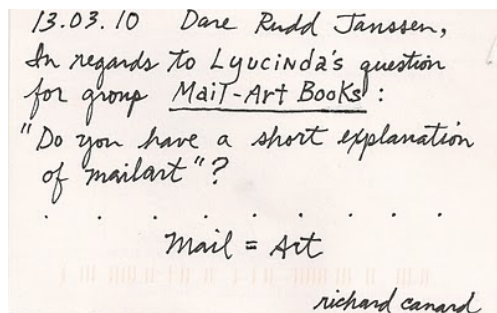 13.03.10 Dare Rudd Janssen,
In regards to Lyucinda's question
for group Mail-Art Books:
"Do you have a short explanation
of mailart"?
. . . . . . . . .
Mail = Art
richard canard